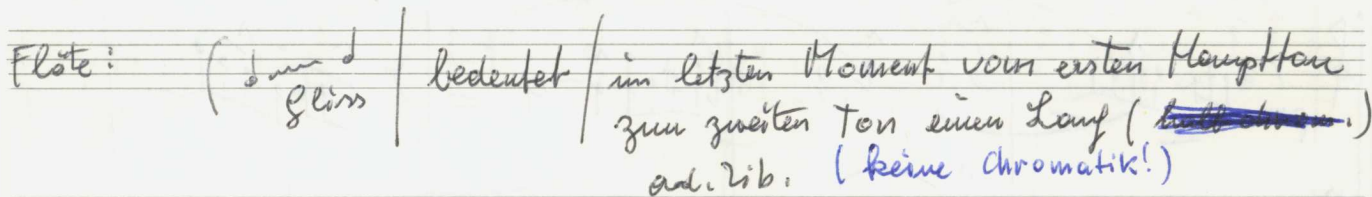 Flöte: ( gliss | bedeutet / im letzten Moment vom ersten Hauptton
zum zweiten Ton einen Lauf ( )
ad. lib. (keine Chromatik!)